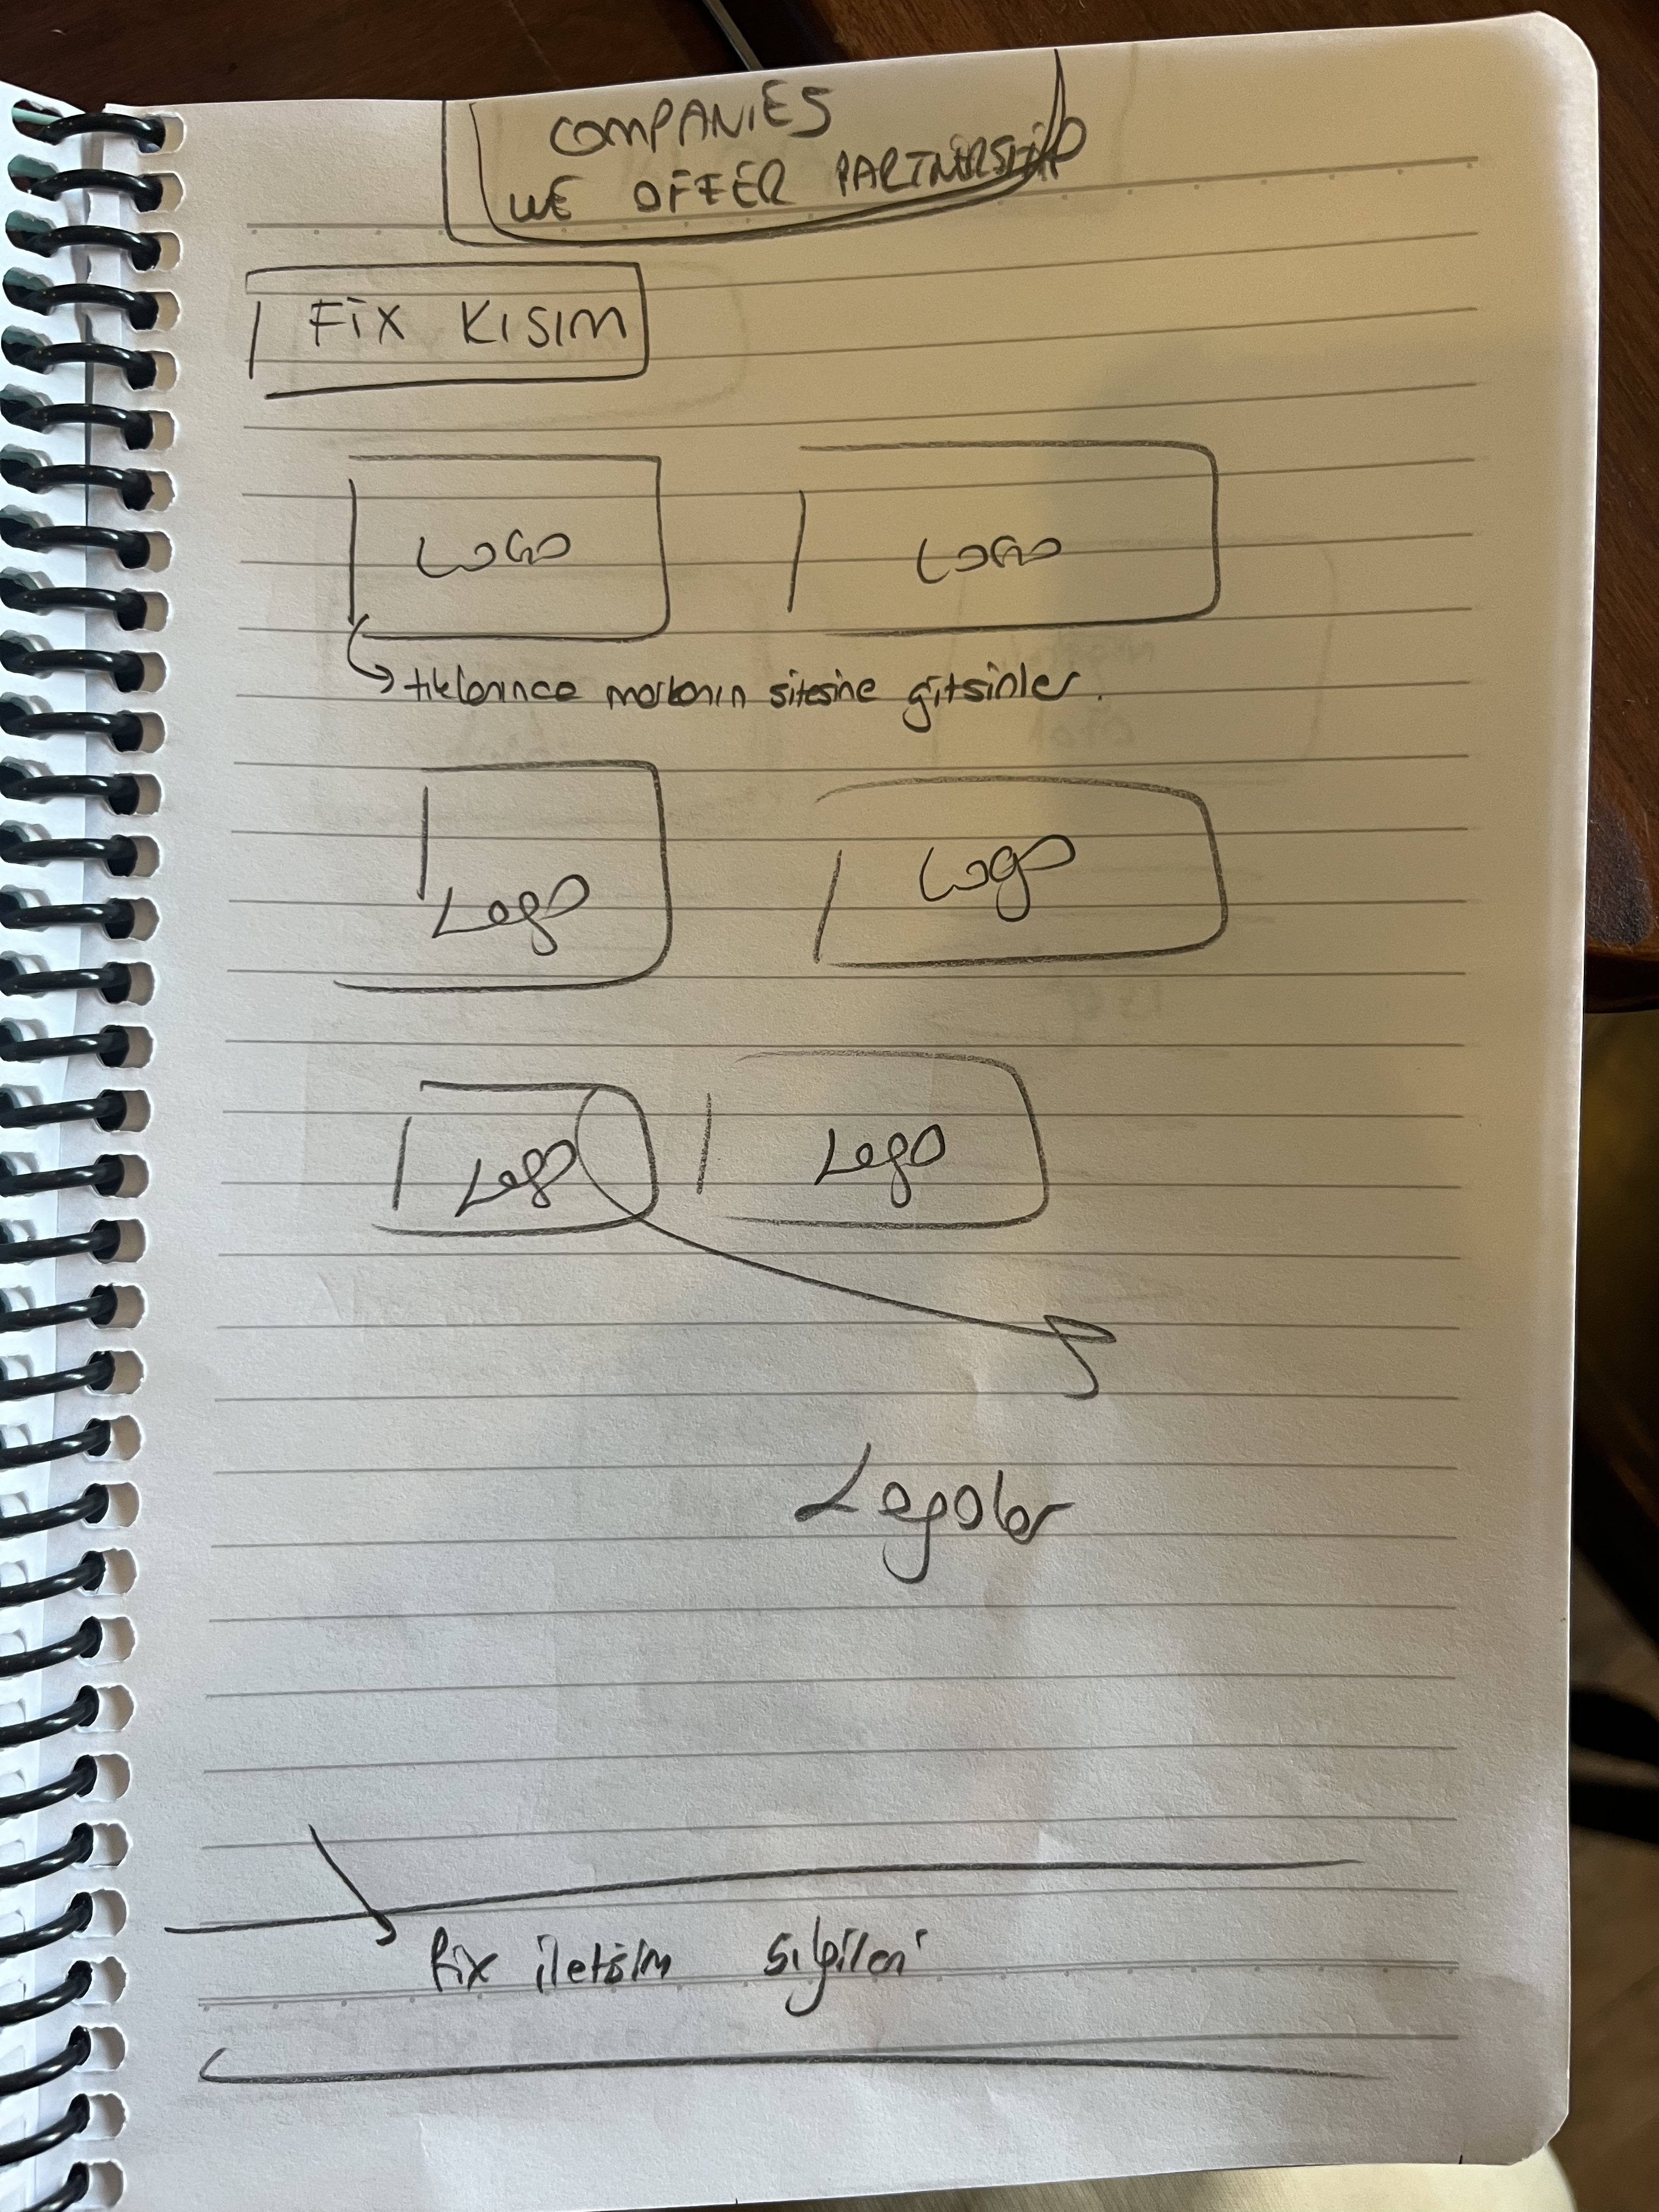 COMPANIES
WE OFFER PARTNERSHIP
FİX KISIM
LOGO LOGO
tıklanınca markanın sitesine gitsinler.
Logo Logo
Logo Logo
Logolar
fix iletisim bilgileri